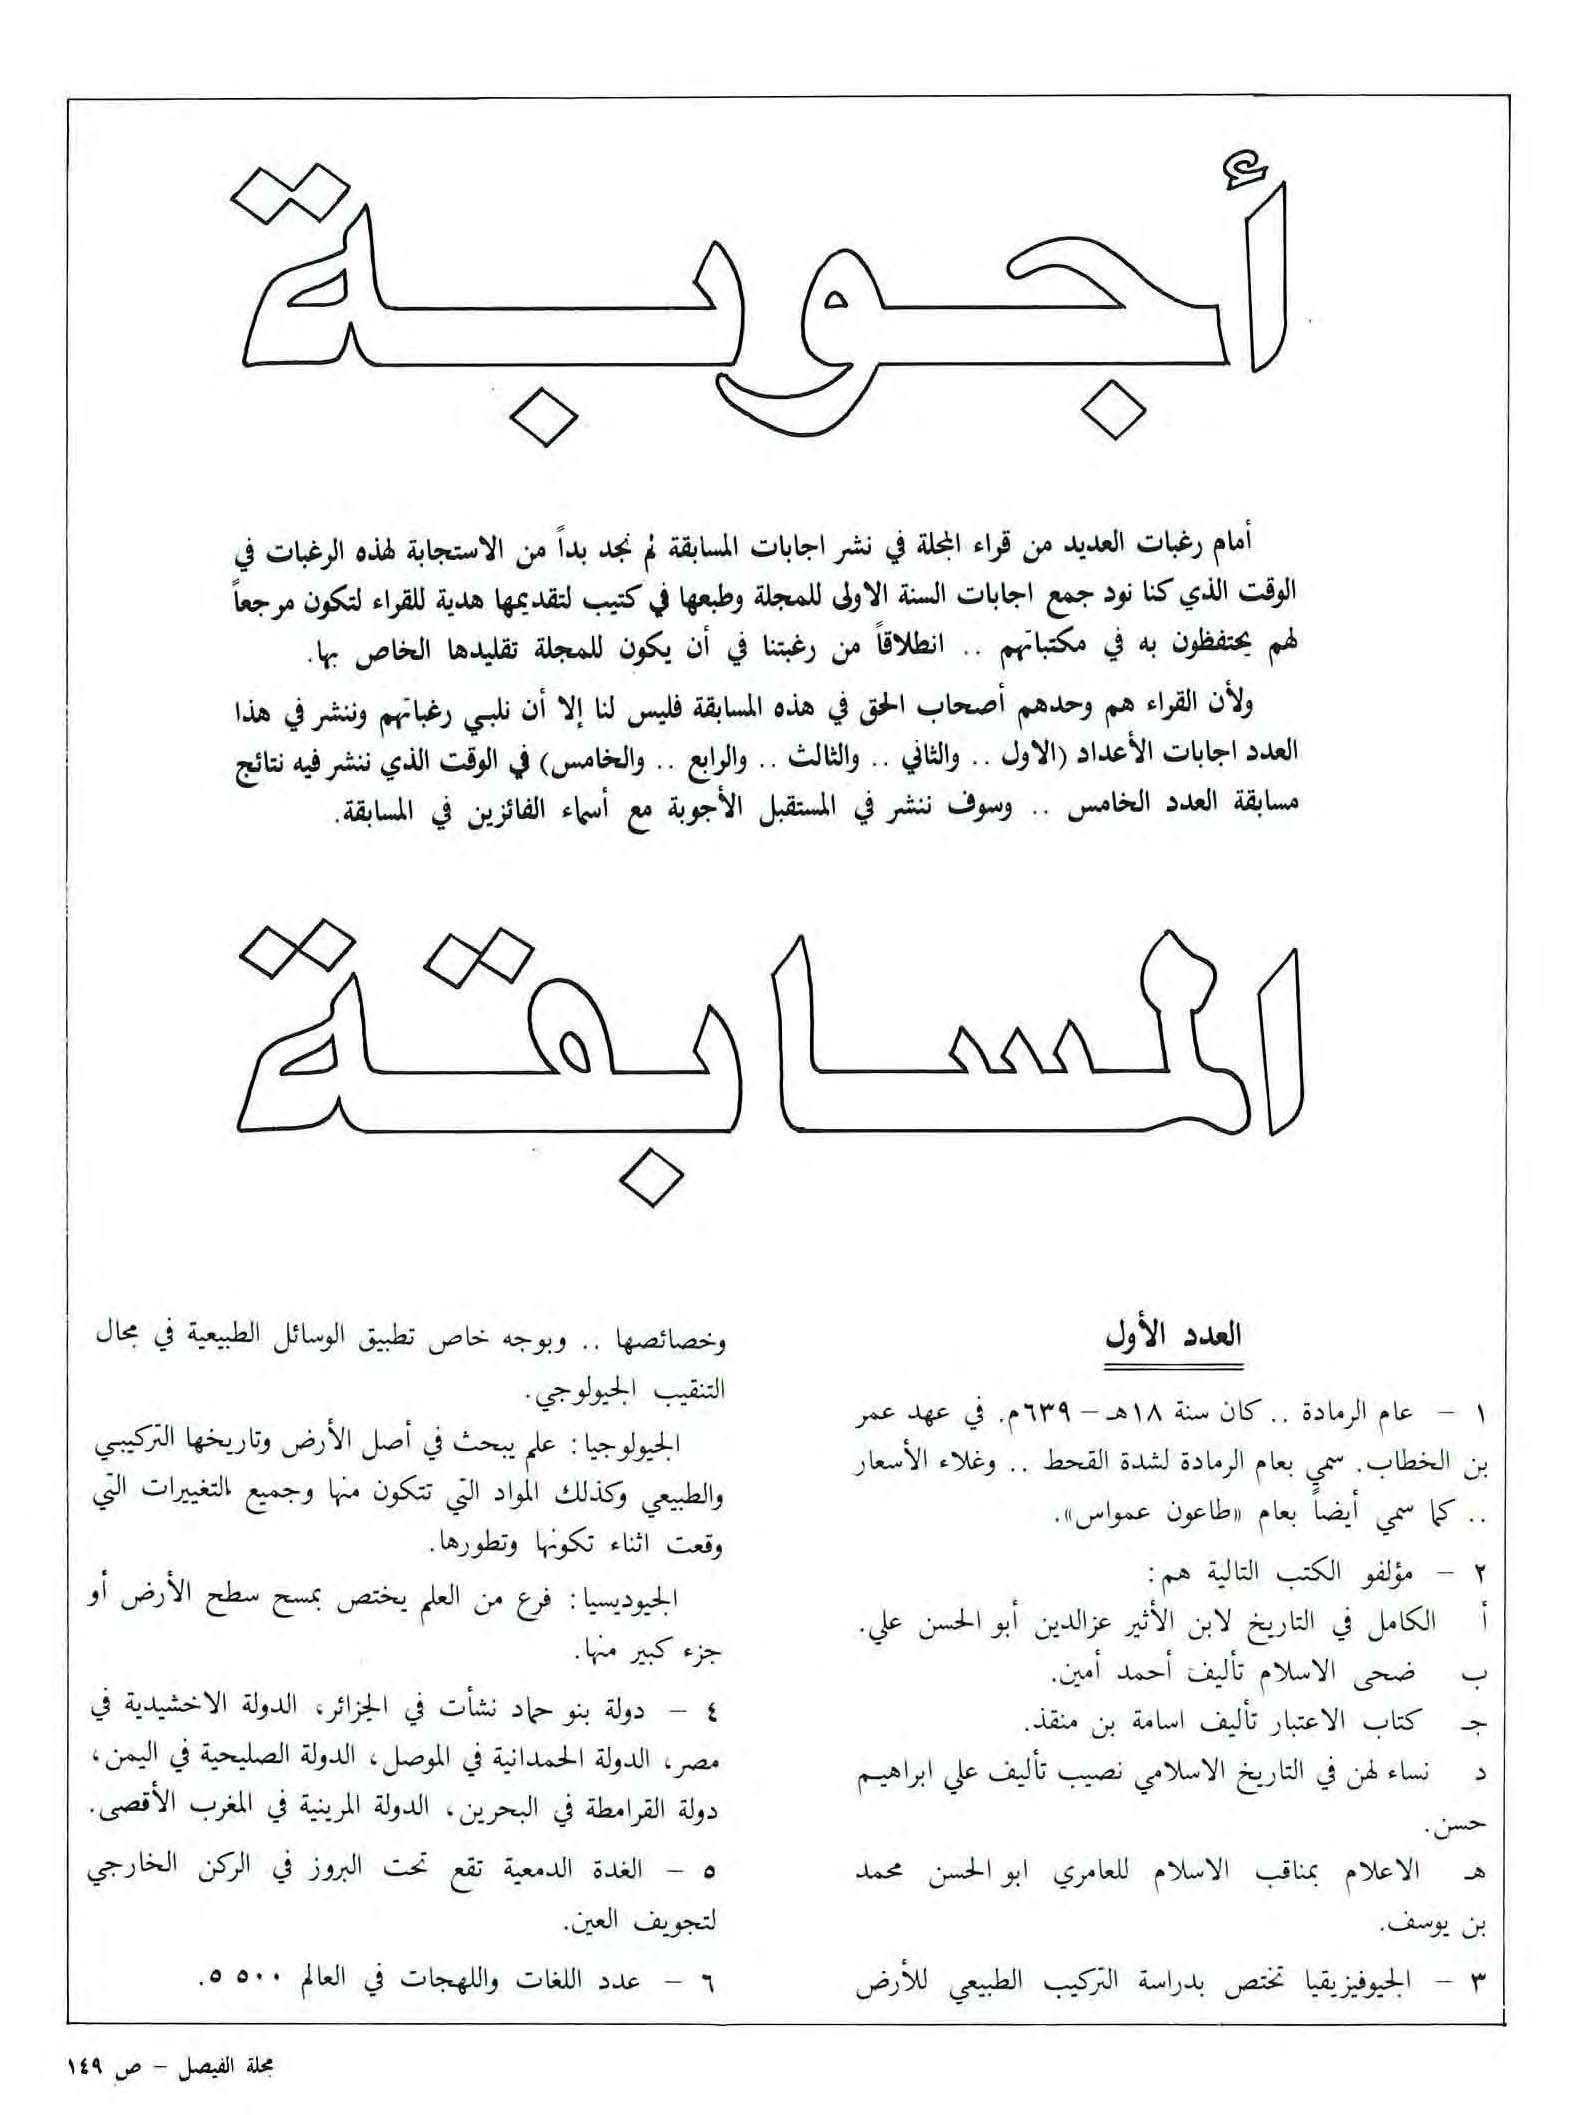 أجوبة
أمام رغبات العديد من قراء المجلة في نشر اجابات المسابقة لم نجد بداً من الاستجابة لهذه الرغبات في
الوقت الذي كنا نود جمع اجابات السنة الاولى للمجلة وطبعها في كتيب لتقديمها هدية للقراء لتكون مرجعاً
لهم يحتفظون به في مكتباتهم .. انطلاقاً من رغبتنا في أن يكون للمجلة تقليدها الخاص بها.
ولأن القراء هم وحدهم أصحاب الحق في هذه المسابقة فليس لنا إلا أن نلبي رغباتهم وننشر في هذا
العدد اجابات الأعداد (الاول .. والثاني .. والثالث .. والرابع .. والخامس) في الوقت الذي ننشر فيه نتائج
مسابقة العدد الخامس .. وسوف ننشر في المستقبل الأجوبة مع أسماء الفائزين في المسابقة.
المسابقة
العدد الأول
١ – عام الرمادة .. كان سنة ١٨هـ – ٦٣٩م. في عهد عمر
بن الخطاب. سمي بعام الرمادة لشدة القحط .. وغلاء الأسعار
.. كما سمي أيضاً بعام «طاعون عمواس».
٢ – مؤلفو الكتب التالية هم:
أ الكامل في التاريخ لابن الأثير عزالدين أبو الحسن علي.
ب ضحى الاسلام تأليف أحمد أمين.
جـ كتاب الاعتبار تأليف اسامة بن منقذ.
د نساء لهن في التاريخ الاسلامي نصيب تأليف علي ابراهيم
حسن.
هـ الاعلام بمناقب الاسلام للعامري ابو الحسن محمد
بن يوسف.
٣ – الجيوفيزيقيا تختص بدراسة التركيب الطبيعي للأرض
وخصائصها .. وبوجه خاص تطبيق الوسائل الطبيعية في مجال
التنقيب الجيولوجي.
الجيولوجيا: علم يبحث في أصل الأرض وتاريخها التركيبي
والطبيعي وكذلك المواد التي تتكون منها وجميع التغييرات التي
وقعت اثناء تكونها وتطورها.
الجيوديسيا: فرع من العلم يختص بمسح سطح الأرض أو
جزء كبير منها.
٤ – دولة بنو حماد نشأت في الجزائر، الدولة الاخشيدية في
مصر، الدولة الحمدانية في الموصل، الدولة الصليحية في اليمن،
دولة القرامطة في البحرين، الدولة المرينية في المغرب الأقصى.
٥ – الغدة الدمعية تقع تحت البروز في الركن الخارجي
لتجويف العين.
٦ – عدد اللغات واللهجات في العالم ٥٥٠٠.
مجلة الفيصل – ص ١٤٩